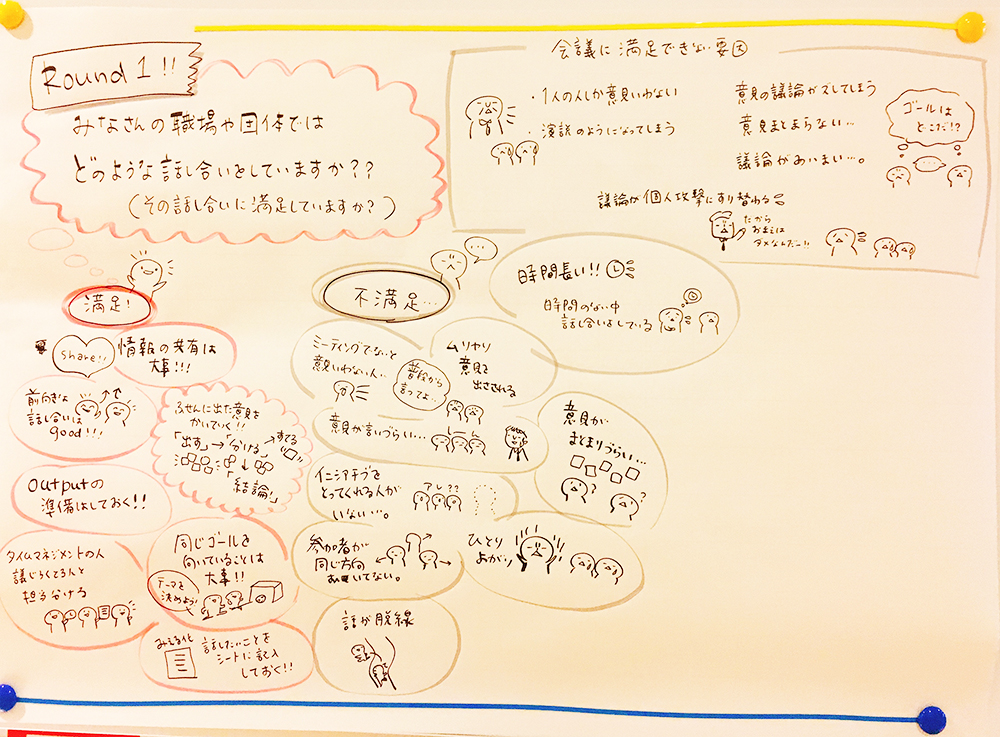 Round 1!!
みなさんの職場や団体では
どのような話し合いをしていますか??
(その話し合いに満足していますか?)
会議に満足できない要因
・1人の人しか意見いわない
・演説のようになってしまう
意見の議論がズレてしまう
意見まとまらない…
議論があいまい…。
ゴールは
どこだ!?
...
議論が個人攻撃にすり替わる
だから
おまえは
ダメなんだー!!
満足!
share!!
情報の共有は
大事!!!
前向きな
話し合いは
good!!!
ふせんに出た意見を
かいていく!!
「出す」→「分ける」→すてる
↓
「結論!」
outputの
準備はしておく!!
タイムマネジメントの人
議じろくとる人と
担当分ける
同じゴールを
向いていることは
大事!!
テーマを
決めよう!
みえる化
話したいことを
シートに記入
しておく!!
不満足…
...
時間長い!!
時間のない中
話し合いをしている
ミーティングでないと
意見いわない人…
普段から
言ってよ…
ムリヤリ
意見を
出させられる
意見が言いづらい…
意見が
まとまりづらい…
? ?
イニシアチブを
とってくれる人が
いない…。
アレ??
参加者が
同じ方向
向いてない。
ひとり
よがり
話が脱線